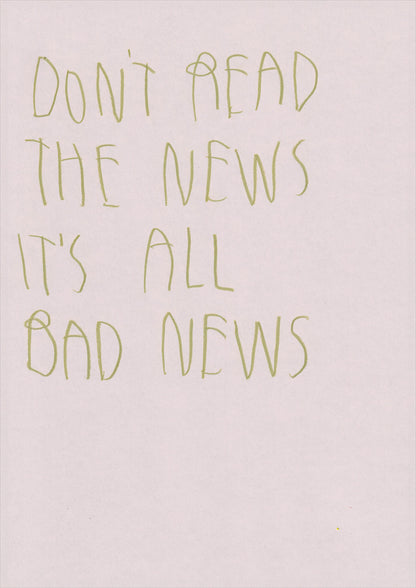 DON'T READ
THE NEWS
IT'S ALL
BAD NEWS